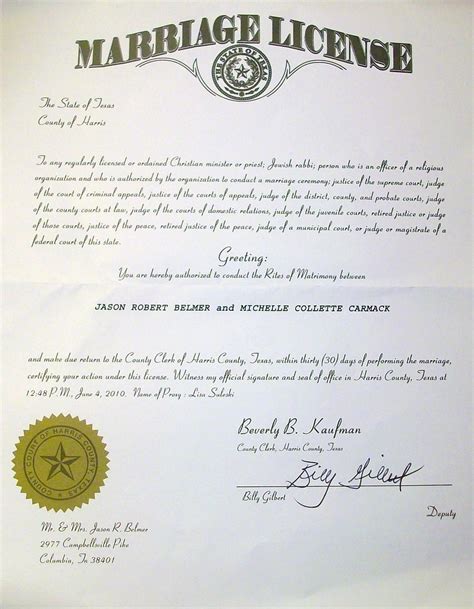 MARRIAGE LICENSE
THE STATE OF TEXAS
The State of Texas
County of Harris
To any regularly licensed or ordained Christian minister or priest; Jewish rabbi; person who is an officer of a religious
organization and who is authorized by the organization to conduct a marriage ceremony; justice of the supreme court, judge
of the court of criminal appeals, justice of the courts of appeals, judge of the district, county, and probate courts, judge of
the county courts at law, judge of the courts of domestic relations, judge of the juvenile courts, retired justice or judge of
those courts, justice of the peace, retired justice of the peace, judge of a municipal court, or judge or magistrate of a
federal court of this state.
Greeting:
You are hereby authorized to conduct the Rites of Matrimony between
JASON ROBERT BELMER and MICHELLE COLLETTE CARMACK
and make due return to the County Clerk of Harris County, Texas, within thirty (30) days of performing the marriage,
certifying your action under this license. Witness my official signature and seal of office in Harris County, Texas at
12:48 P.M., June 4, 2010. Name of Proxy : Lisa Suleski
Beverly B. Kaufman
County Clerk, Harris County, Texas
Billy Gilbert
Billy Gilbert
Deputy
COUNTY COURT OF HARRIS COUNTY, TEXAS
Mr. & Mrs. Jason R. Belmer
2977 Campbellsville Pike
Columbia, Tn 38401